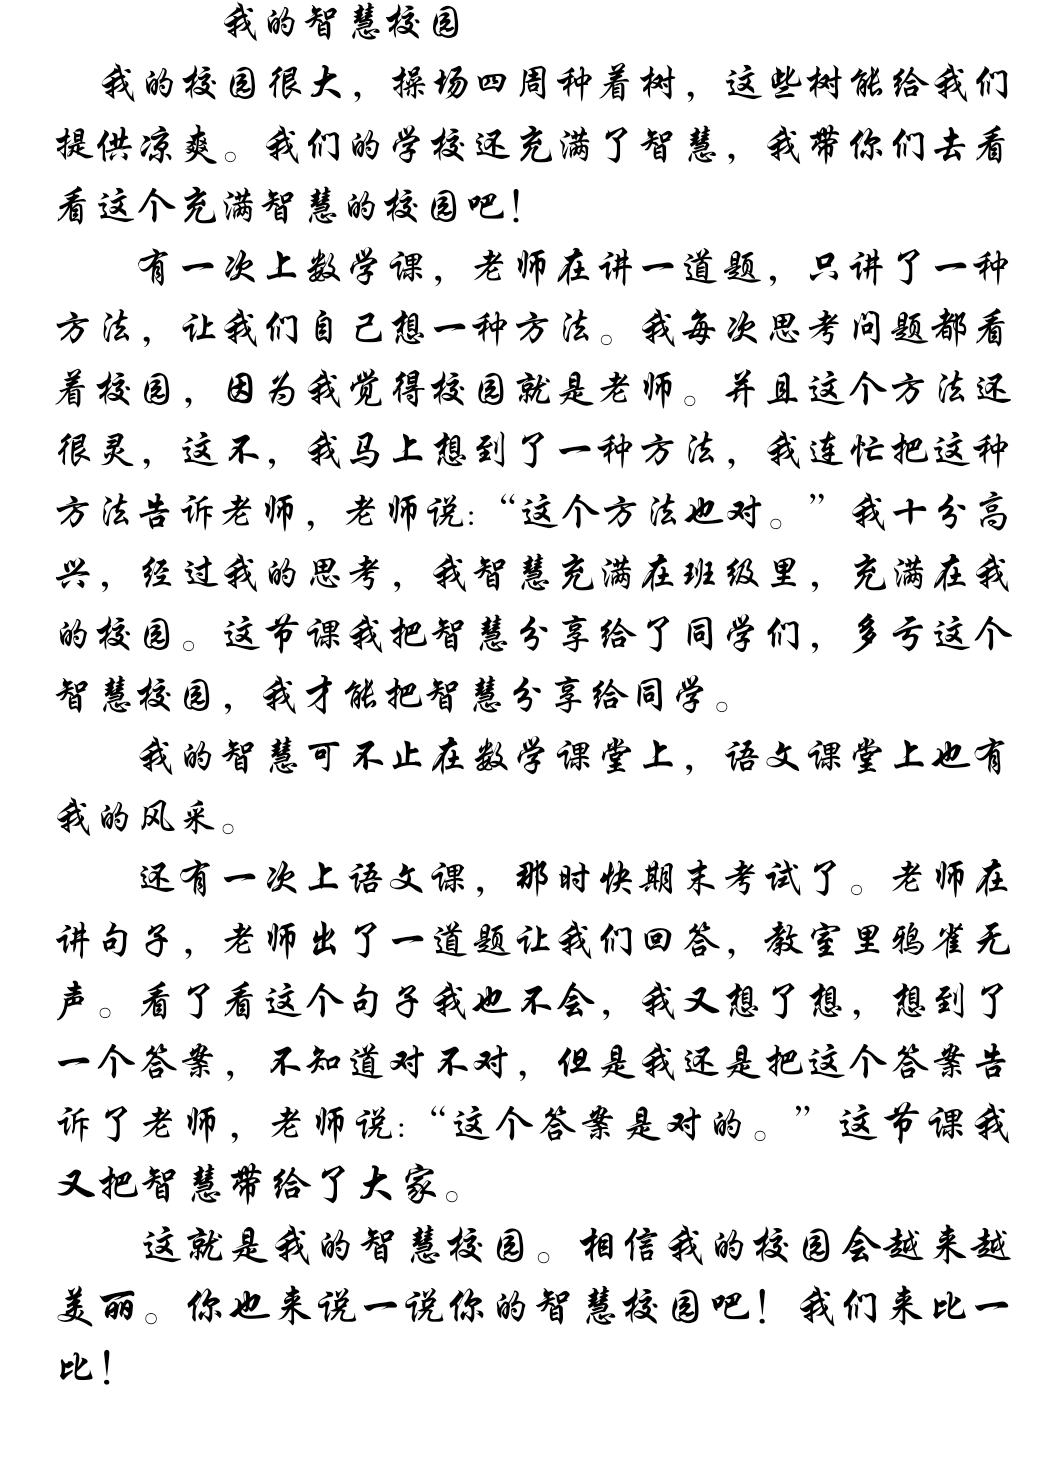 我的智慧校园
我的校园很大，操场四周种着树，这些树能给我们
提供凉爽。我们的学校还充满了智慧，我带你们去看
看这个充满智慧的校园吧！
有一次上数学课，老师在讲一道题，只讲了一种
方法，让我们自己想一种方法。我每次思考问题都看
着校园，因为我觉得校园就是老师。并且这个方法还
很灵，这不，我马上想到了一种方法，我连忙把这种
方法告诉老师，老师说：“这个方法也对。”我十分高
兴，经过我的思考，我智慧充满在班级里，充满在我
的校园。这节课我把智慧分享给了同学们，多亏这个
智慧校园，我才能把智慧分享给同学。
我的智慧可不止在数学课堂上，语文课堂上也有
我的风采。
还有一次上语文课，那时快期末考试了。老师在
讲句子，老师出了一道题让我们回答，教室里鸦雀无
声。看了看这个句子我也不会，我又想了想，想到了
一个答案，不知道对不对，但是我还是把这个答案告
诉了老师，老师说：“这个答案是对的。”这节课我
又把智慧带给了大家。
这就是我的智慧校园。相信我的校园会越来越
美丽。你也来说一说你的智慧校园吧！我们来比一
比！